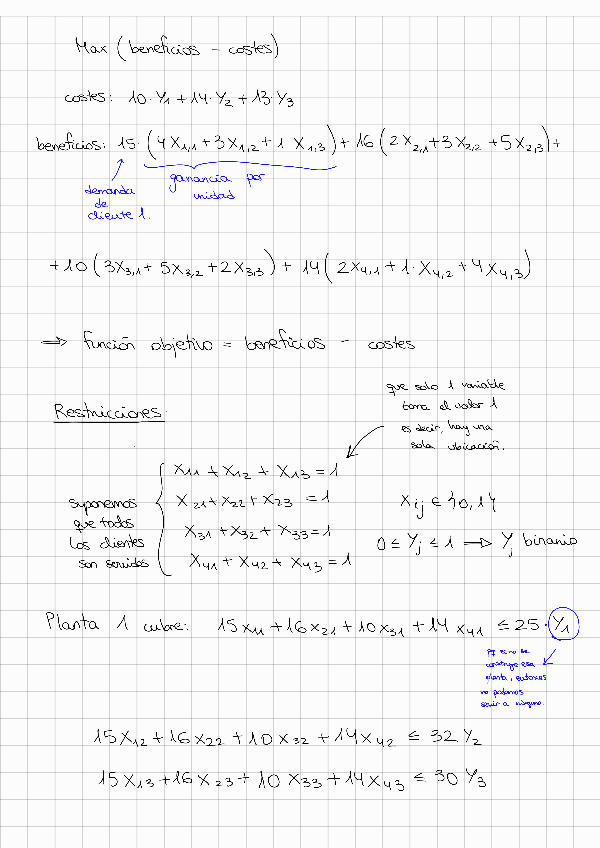 Max (beneficios - costes)
costes: 10·Y₁ + 14·Y₂ + 13·Y₃
beneficios: 15·(4X₁,₁ + 3X₁,₂ + 1 X₁,₃) + 16(2X₂,₁ + 3X₂,₂ + 5X₂,₃) +
demanda de cliente 1.
ganancia por unidad
+ 10(3X₃,₁ + 5X₃,₂ + 2X₃,₃) + 14(2X₄,₁ + 1·X₄,₂ + 4X₄,₃)
⇒ función objetivo = beneficios - costes
que solo 1 variable
toma el valor 1
es decir, hay una
sola ubicación.
Restricciones:
suponemos
que todos
los clientes
son servidos
X₁₁ + X₁₂ + X₁₃ = 1
X₂₁ + X₂₂ + X₂₃ = 1
X₃₁ + X₃₂ + X₃₃ = 1
X₄₁ + X₄₂ + X₄₃ = 1
Xij ∈ {0,1}
0 ≤ Yj ≤ 1 ⇒ Yj binario
Planta 1 cubre: 15X₁₁ + 16X₂₁ + 10X₃₁ + 14X₄₁ ≤ 25·Y₁
pq si no se
construye esa
planta, entonces
no podemos
servir a ninguno.
15X₁₂ + 16X₂₂ + 10X₃₂ + 14X₄₂ ≤ 32Y₂
15X₁₃ + 16X₂₃ + 10X₃₃ + 14X₄₃ ≤ 30Y₃